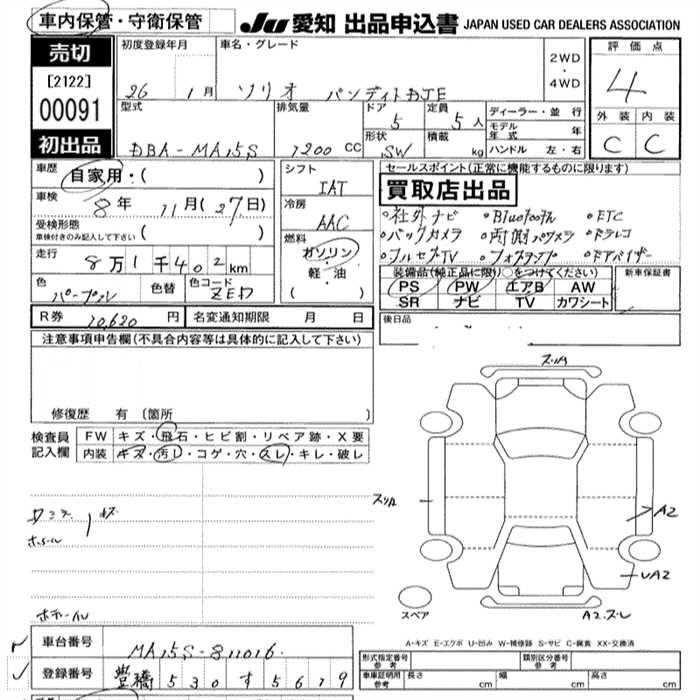 車内保管・守衛保管
JU 愛知 出品申込書 JAPAN USED CAR DEALERS ASSOCIATION
売切
[2122]
00091
初出品
初度登録年月
26 1月
車名・グレード
ソリオ バンディット DJE
2WD
・
4WD
評価点
4
外装 内装
C C
型式
DBA-MA15S
排気量
1200 CC
ドア
5
定員
5人
形状
SW
積載
kg
ディーラー・並行
モデル年式 年
ハンドル 左・右
車歴
自家用・( )
車検
8年 11月(27日)
受検形態
車検付きのみ記入して下さい ( )
走行
8万1千402km
色
パープル
色替
色コード
ZED
シフト
IAT
冷房
AAC
燃料
ガソリン
・
軽・油
( )
セールスポイント(正常に機能するものに限ります)
買取店出品
○社外ナビ ○Bluetooth ○ETC
○バックカメラ ○両側パワスラ ○ドラレコ
○フルセグTV ○フォグランプ ○ドアバイザー
装備品(純正品に限り○をつけてください)
PS PW エアB AW
SR ナビ TV カワシート
新車保証書
R券 10,620円
名変通知期限 月 日
後日品
注意事項申告欄(不具合内容等は具体的に記入して下さい)
修復歴 有(箇所 )
検査員記入欄
FW キズ・飛石・ヒビ割・リペア跡・X要
内装 キズ・汚れ・コゲ・穴・スレ・キレ・破レ
スリキ
A2
UA2
スペア
A2.スレ
A-キズ E-エクボ U-凹み W-補修跡 S-サビ C-腐食 XX-交換済
車台番号
MA15S-811016
登録番号
豊橋 530 す 5619
形式指定番号 参考
類別区分番号 参考
車車証明用 参考
長さ cm 幅 cm 高さ cm